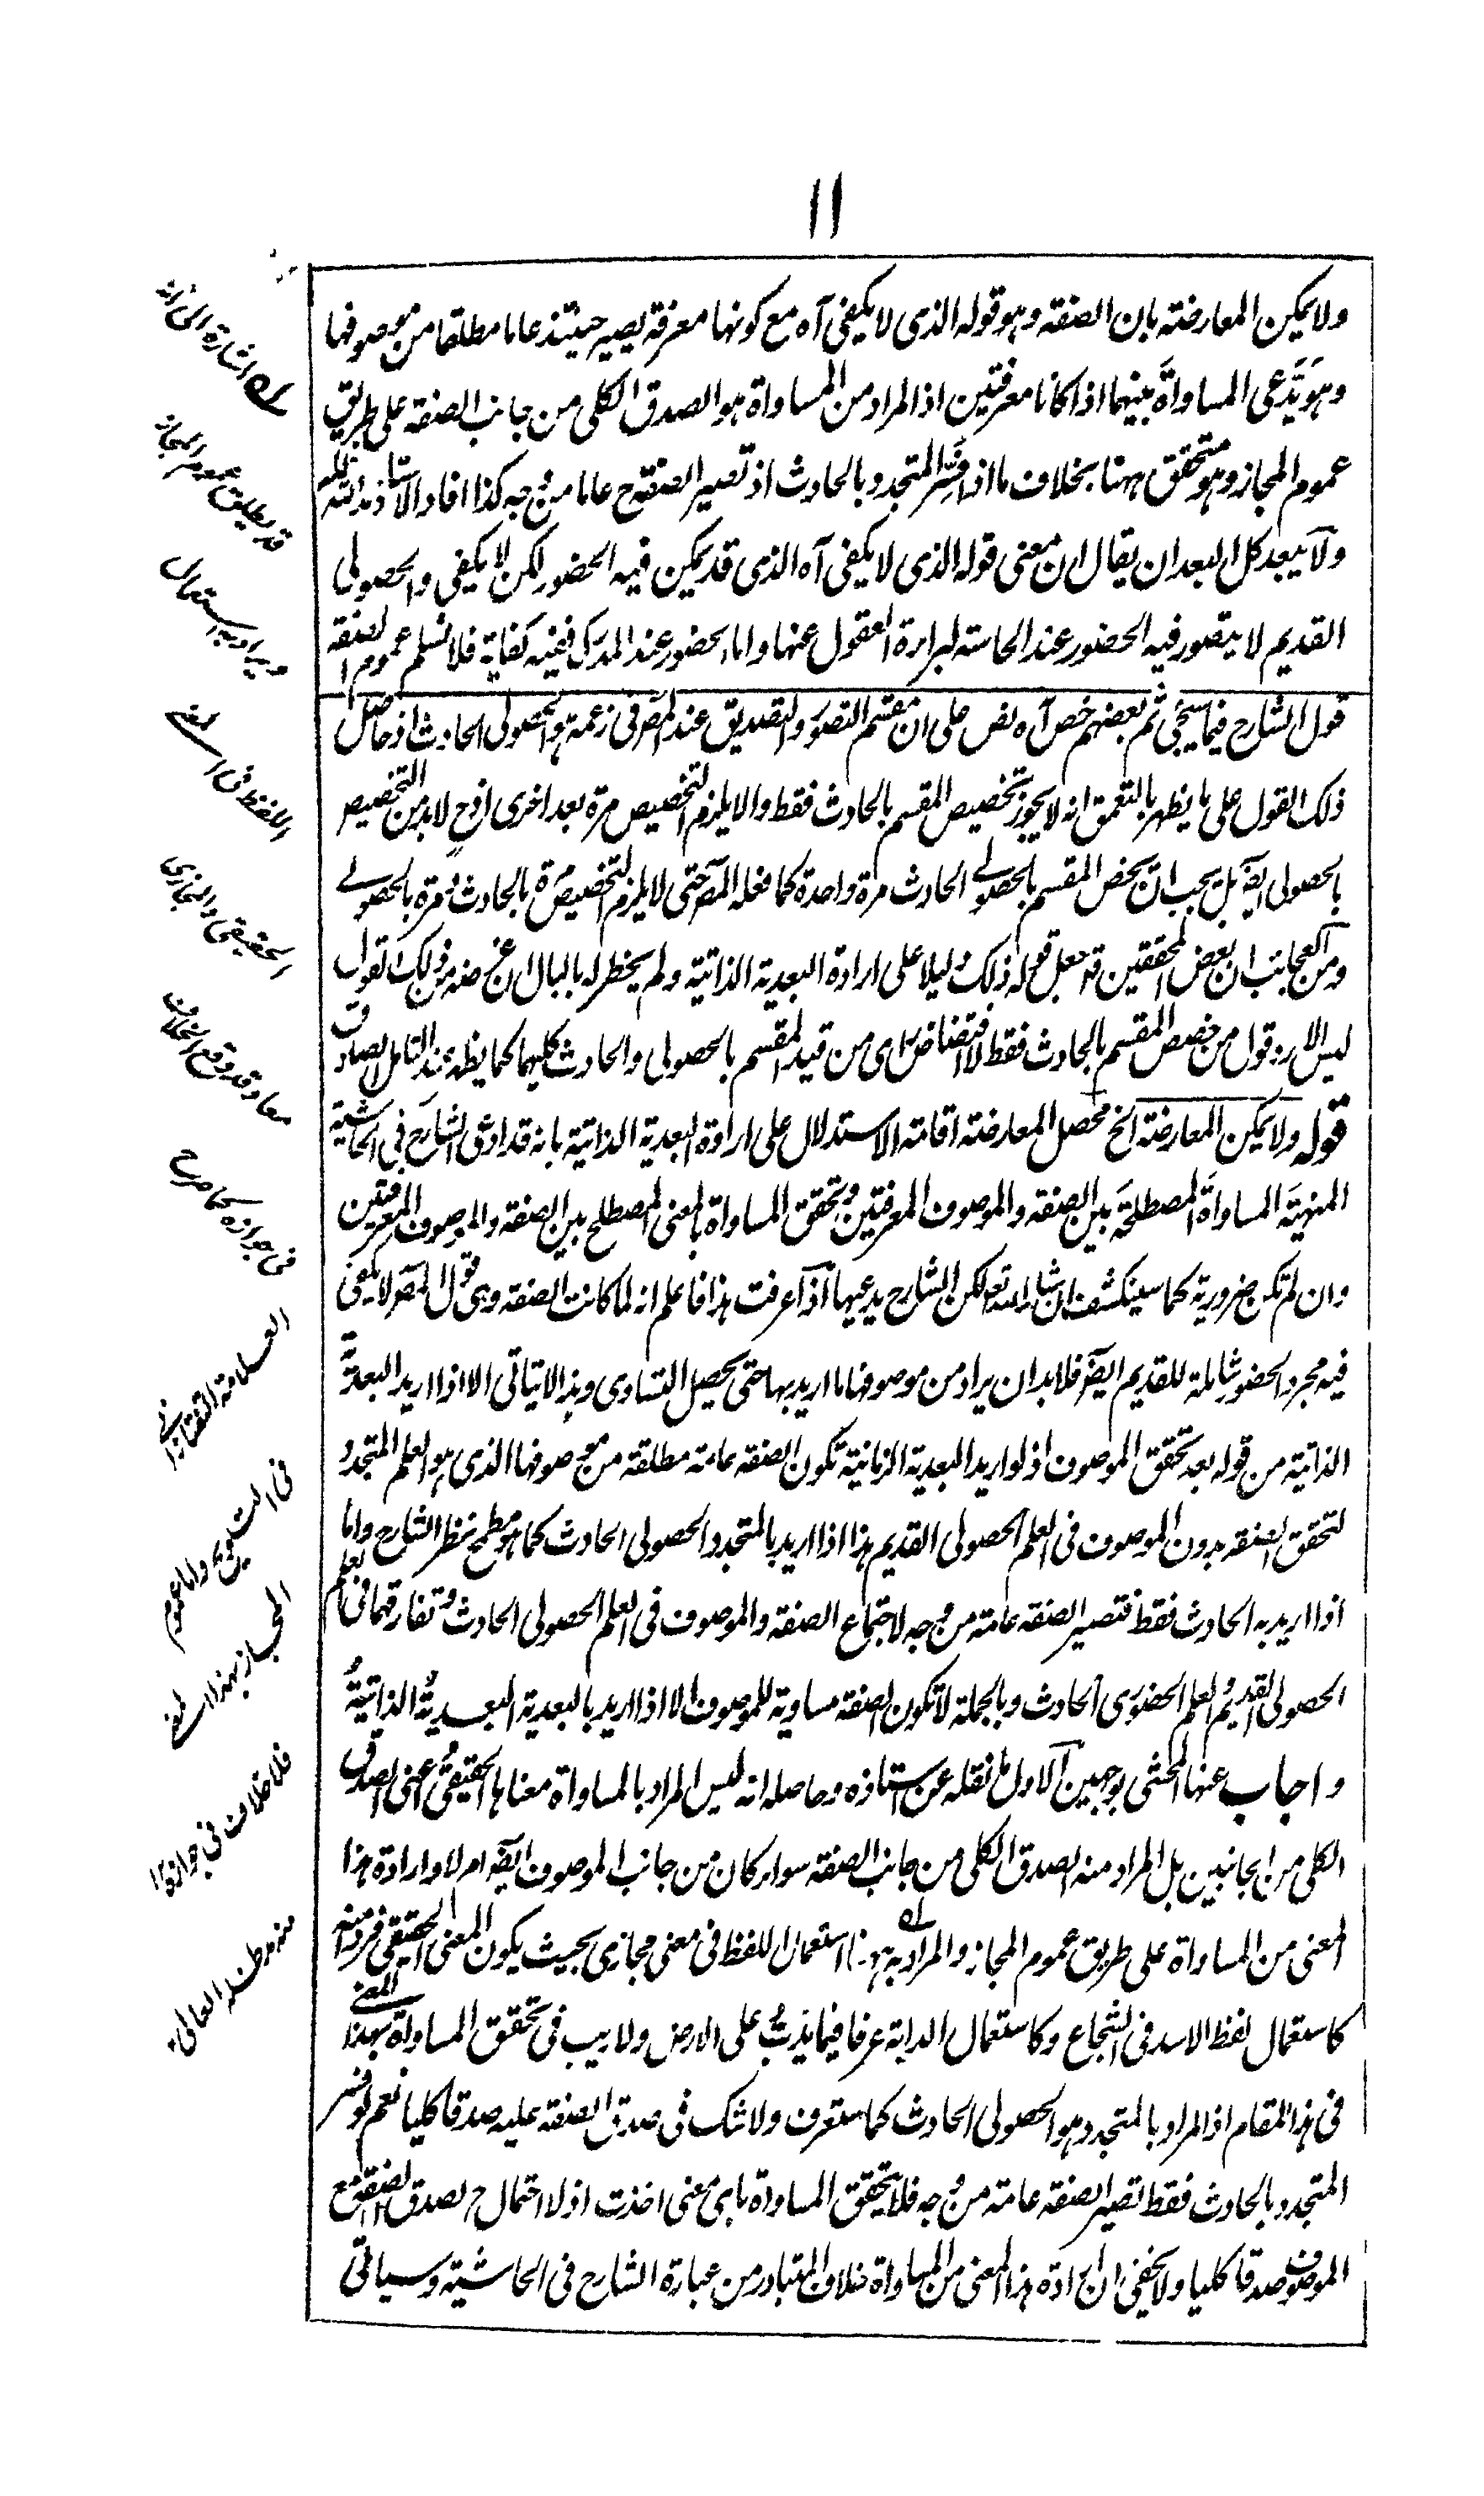 ١١
ولا يمكن المعارضة بان الصفة وهو قوله الذى لا يكفى آه مع كونها معرفة يصير حينئذ عاما مطلقا من موصوفها
وهو يدعى المساواة بينهما اذا كانا معرفتين اذ المراد من المساواة هو الصدق الكلى من جانب الصفة على طريق
عموم المجاز وهو متحقق ههنا بخلاف ما اذا فسر المتجدد بالحادث اذ تصير الصفة ح عاما من وجه كذا افاد الاستاذ مد ظله
ولا يبعد كل البعد ان يقال ان معنى قوله الذى لا يكفى آه الذى قد يمكن فيه الحضور لكن لا يكفى والحصولى
القديم لا يتصور فيه الحضور عند الحاسة لبراءة العقول عنها واما الحضور عند المدرك ففيه كفاية فلا نسلم عموم الصفة
قول الشارح فيما سيجئ ثم بعضهم خص آه نص على ان مقسم التصور والتصديق عند المص فى زعمه هو الحصولى الحادث اذ حاصل
ذلك القول على ما يظهر بالتعمق انه لا يجوز تخصيص المقسم بالحادث فقط والا يلزم التخصيص مرة بعد اخرى اذ ح لا بد من التخصيص
بالحصولى ايضا بل يجب ان يخص المقسم بالحصولى الحادث مرة واحدة كما فعله المص حتى لا يلزم التخصيص مرة بالحادث ومرة بالحصولى
ومن العجائب ان بعض المحققين قد جعل قوله ذلك دليلا على ارادة البعدية الذاتية ولم يخطر له بالبال ان غرضه من ذلك القول
ليس الا رد قول من خصص المقسم بالحادث فقط لا اقتضاض رأى من قيد المقسم بالحصولى والحادث كليهما كما يظهر عند التامل الصادق
قوله ولا يمكن المعارضة الخ محصل المعارضة اقامة الاستدلال على ارادة البعدية الذاتية بانه قد ادعى الشارح فى الحاشية
المنهية المساواة المصطلحة بين الصفة والموصوف المعرفتين وتحقق المساواة بالمعنى المصطلح بين الصفة والموصوف المعرفتين
وان لم تكن ضرورية كما سينكشف ان شاء الله تعه لكن الشارح يدعيها اذا عرفت هذا فاعلم انه لما كانت الصفة وهى قول المصر لا يكفى
فيه مجرد الحضور شاملة للقديم ايضا فلا بد ان يراد من موصوفها ما اريد بها حتى يحصل التساوى وهذا لا يتاتى الا اذا اريد البعدية
الذاتية من قوله بعد تحقق الموصوف اذ لو اريد البعدية الزمانية تكون الصفة عامة مطلقة من موصوفها الذى هو العلم المتجدد
لتحقق الصفة بدون الموصوف فى العلم الحصولى القديم هذا اذا اريد بالمتجدد الحصولى الحادث كما هو مطمح نظر الشارح واما
اذا اريد به الحادث فقط فتصير الصفة عامة من وجه لاجتماع الصفة والموصوف فى العلم الحصولى الحادث وتفارقهما فى العلم
الحصولى القديم والعلم الحضورى الحادث وبالجملة لا تكون الصفة مساوية للموصوف الا اذا اريد بالبعدية البعدية الذاتية
واجاب عنها المحشى بوجهين الاول ما نقله عن استاذه وحاصله انه ليس المراد بالمساواة معناها الحقيقى اعنى الصدق
الكلى من الجانبين بل المراد منه الصدق الكلى من جانب الصفة سواء كان من جانب الموصوف ايضا ام لا وارادة هذا
المعنى من المساواة على طريق عموم المجاز والمراد به ههنا استعمال اللفظ فى معنى مجازى بحيث يكون المعنى الحقيقى فردا منه
كاستعمال لفظ الاسد فى الشجاع وكاستعمال الدابة عرفا فيما يدب على الارض ولا ريب فى تحقق المساواة بهذا المعنى
فى هذا المقام اذ المراد بالمتجدد هو الحصولى الحادث كما ستعرف ولا شك فى صدق الصفة عليه صدقا كليا نعم لو فسر
المتجدد بالحادث فقط تصير الصفة عامة من وجه فلا يتحقق المساواة باى معنى اخذت اذ لا احتمال ح لصدق الصفة مع
الموصوف صدقا كليا ولا يخفى ان ارادة هذا المعنى من المساواة خلاف المتبادر من عبارة الشارح فى الحاشية وسياتى
له اشارة الى انه
قد يطلق عموم المجاز
ويراد به استعمال
اللفظ فى المعنى
الحقيقى والمجازى
معا وقد وقع الخلاف
فى جوازه كما صرح
العلامة التفتازانى
فى التلويح واما عموم
المجاز بهذا المعنى
فلا خلاف فى جوازه ١٢
منه مد ظله العالى